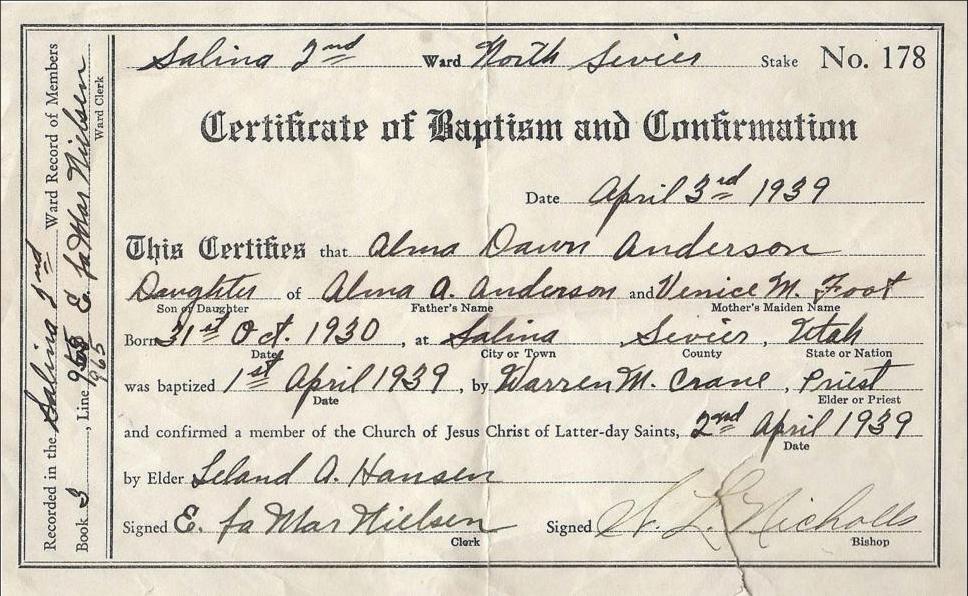 Salina 2nd Ward North Sevier Stake No. 178
Certificate of Baptism and Confirmation
Date April 3rd 1939
This Certifies that Alma Dawn Anderson
Daughter of Alma A. Anderson and Venice M. Foot
Son or Daughter Father's Name Mother's Maiden Name
Born 31st Oct. 1930, at Salina Sevier, Utah
Date City or Town County State or Nation
was baptized 1st April 1939, by Warren M. Crane, Priest
Date Elder or Priest
and confirmed a member of the Church of Jesus Christ of Latter-day Saints, 2nd April 1939
Date
by Elder Leland A. Hansen
Signed E. La Mar Nielsen Signed Nicholls
Clerk Bishop
Recorded in the Salina 2nd Ward Record of Members
Book 3, Line 965 E. La Mar Nielsen
Ward Clerk